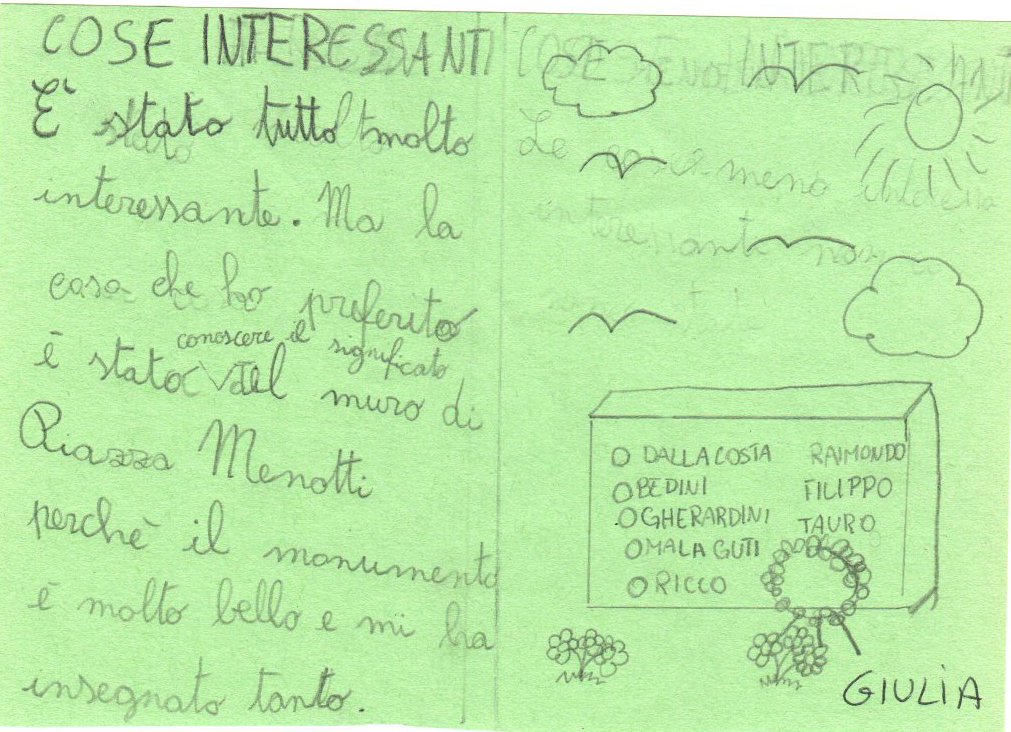 COSE INTERESSANTI
È stato tutto molto
interessante. Ma la
cosa che ho preferito
conoscere il significato
è stato del muro di
Piazza Menotti
perchè il monumento
è molto bello e mi ha
insegnato tanto.
COSE MENO INTERESSANTI
Le cose meno
interessanti
O DALLACOSTA RAIMONDO
O BEDINI FILIPPO
O GHERARDINI TAURO
O MALAGUTI
O RICCO
GIULIA